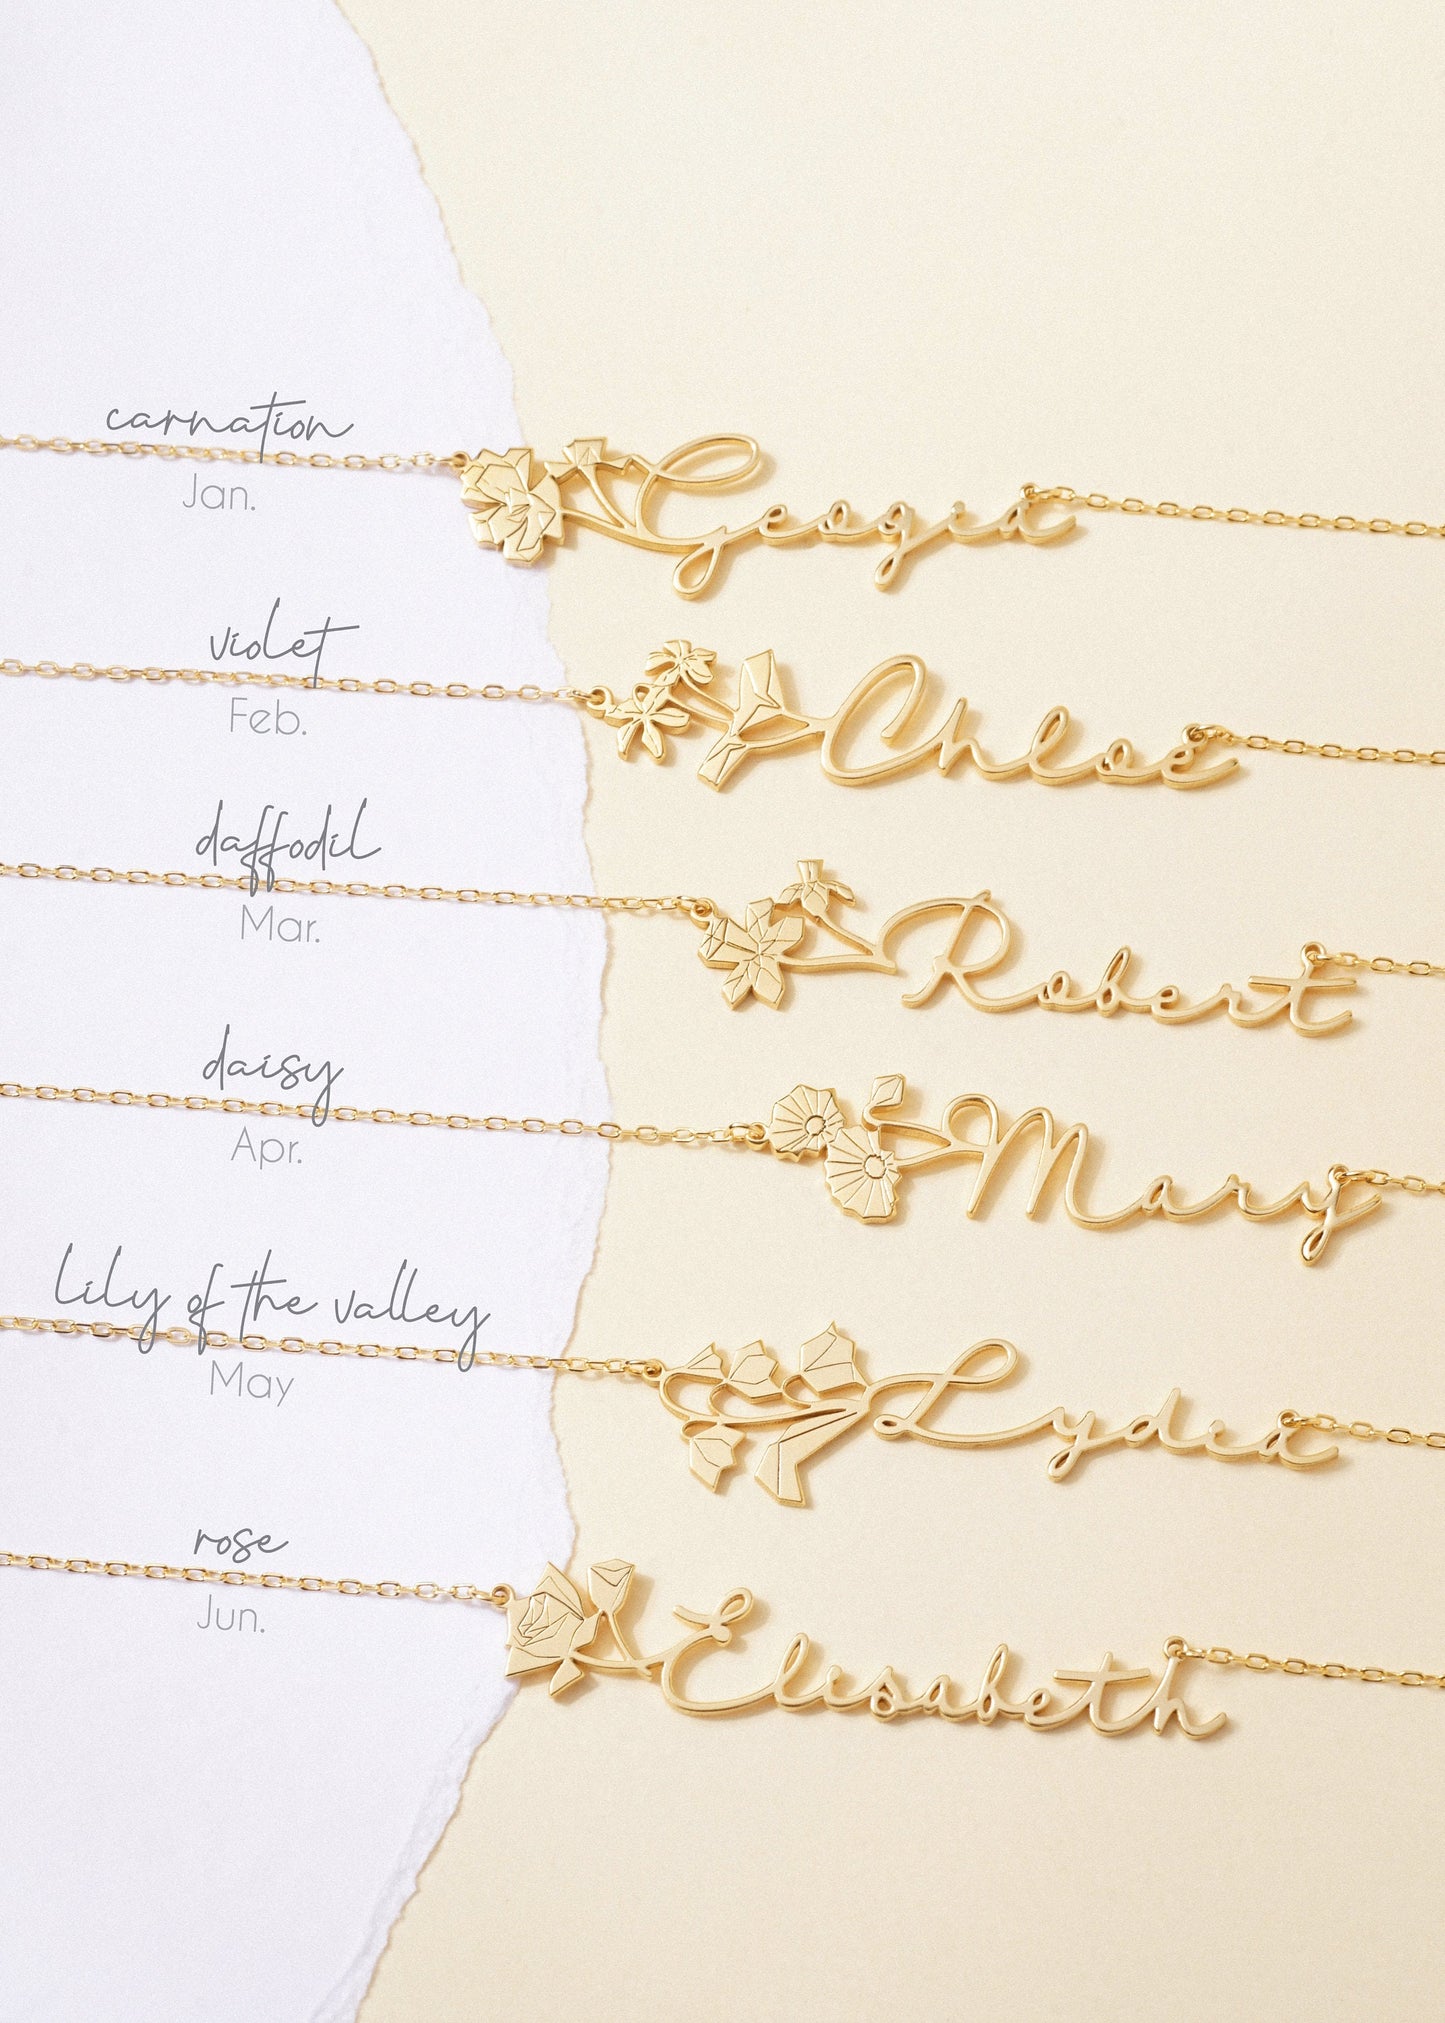 carnation
Jan.
Geogia
violet
Feb.
Chloe
daffodil
Mar.
Robert
daisy
Apr.
Mary
lily of the valley
May
Lydia
rose
Jun.
Elisabeth